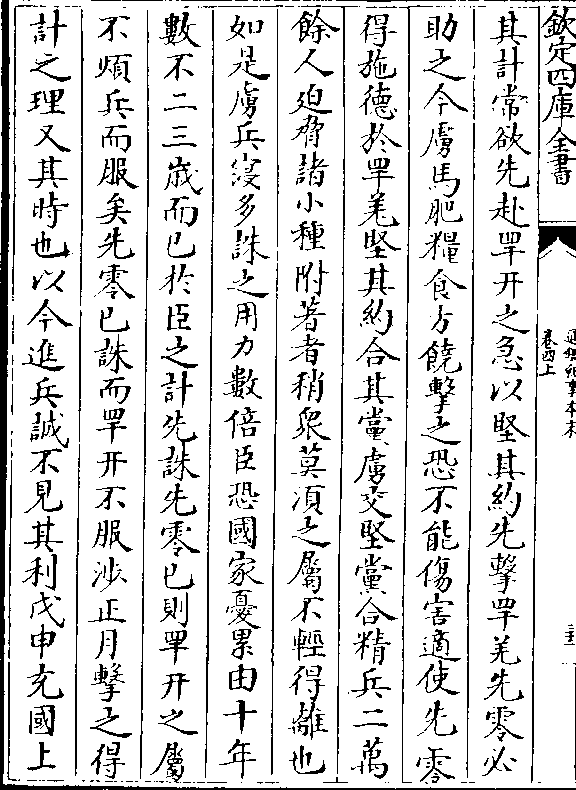 欽定四庫全書
通鑑紀事本末
卷四上
其計常欲先赴䍐幵之急以堅其約先擊䍐羌先零必
助之今虜馬肥糧食方饒擊之恐不能傷害適使先零
得施德於䍐羌堅其約合其黨虜交堅黨合精兵二萬
餘人迫脅諸小種附著者稍衆莫須之屬不輕得離也
如是虜兵寖多誅之用力數倍臣恐國家憂累由十年
數不二三歲而已於臣之計先誅先零已則䍐幵之屬
不煩兵而服矣先零已誅而䍐幵不服涉正月擊之得
計之理又其時也以今進兵誠不見其利戊申充國上